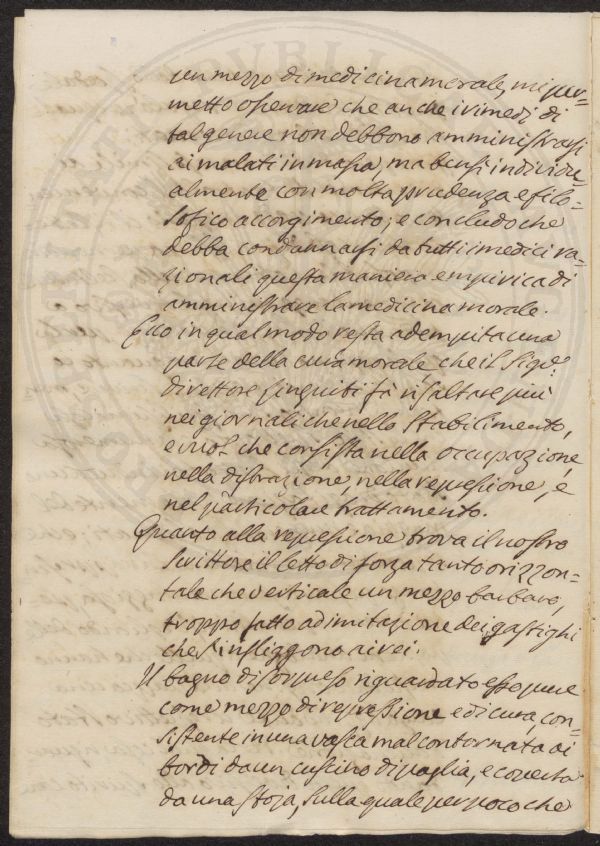 un mezzo di medicina morale, mi per=
metto osservare che anche i rimedj di
tal genere non debbono amministrarsi
ai malati in massa, ma bensì individu=
almente con molta prudenza e filo=
sofico accorgimento; e concludo che
debba condannarsi da tutti i medici ra=
zionali questa maniera empirica di
amministrare la medicina morale.
Ecco in qual modo resta adempita una
parte della cura morale, che il Sigr.
direttore Linguiti fà risaltare più
nei giornali che nello Stabilimento,
e vuol che consista nella occupazione,
nella distrazione, nella repressione, e
nel particolare trattamento.
Quanto alla repressione trova il nostro
Scrittore il letto di forza tanto orizzon=
tale che verticale un mezzo barbaro,
troppo fatto ad imitazione dei gastighi
che s'infliggono ai rei.
Il bagno di sorpreso riguardato esso pure
come mezzo di repressione e di cura, con=
sistente in una vasca mal contornata ai
bordi da un cuscino di paglia, e coverta
da una stoja, sulla quale per poco che